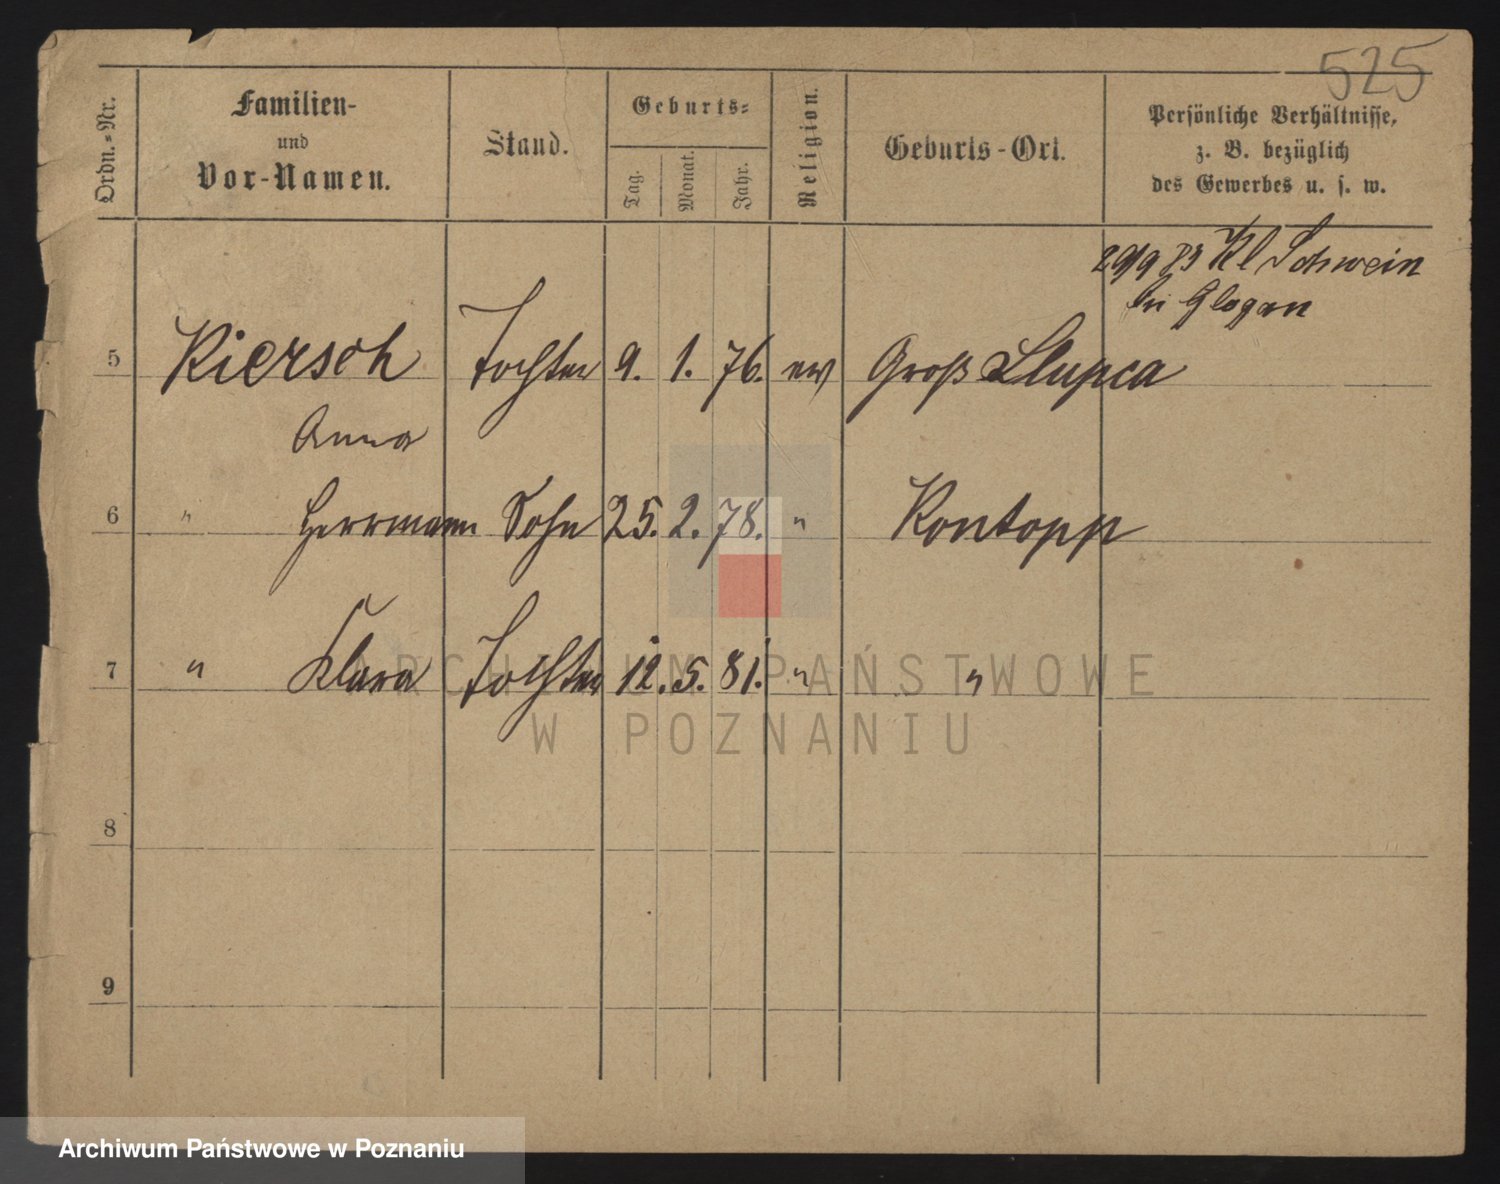 525
Ordn.-Nr.
Familien-
und
Vor-Namen.
Stand.
Geburts-
Tag.
Monat.
Jahr.
Religion.
Geburts-Ort.
Persönliche Verhältnisse,
z. B. bezüglich
des Gewerbes u. s. w.
29/9 83 Kl Schwein
bei Glogau
5 Kiersch Tochter 9. 1. 76. ev Groß Slupca
Anna
6 " Herrmann Sohn 25. 2. 78. " Kontopp
7 " Klara Tochter 12. 5. 81. " "
8
9
ARCHIWUM PAŃSTWOWE
W POZNANIU
Archiwum Państwowe w Poznaniu